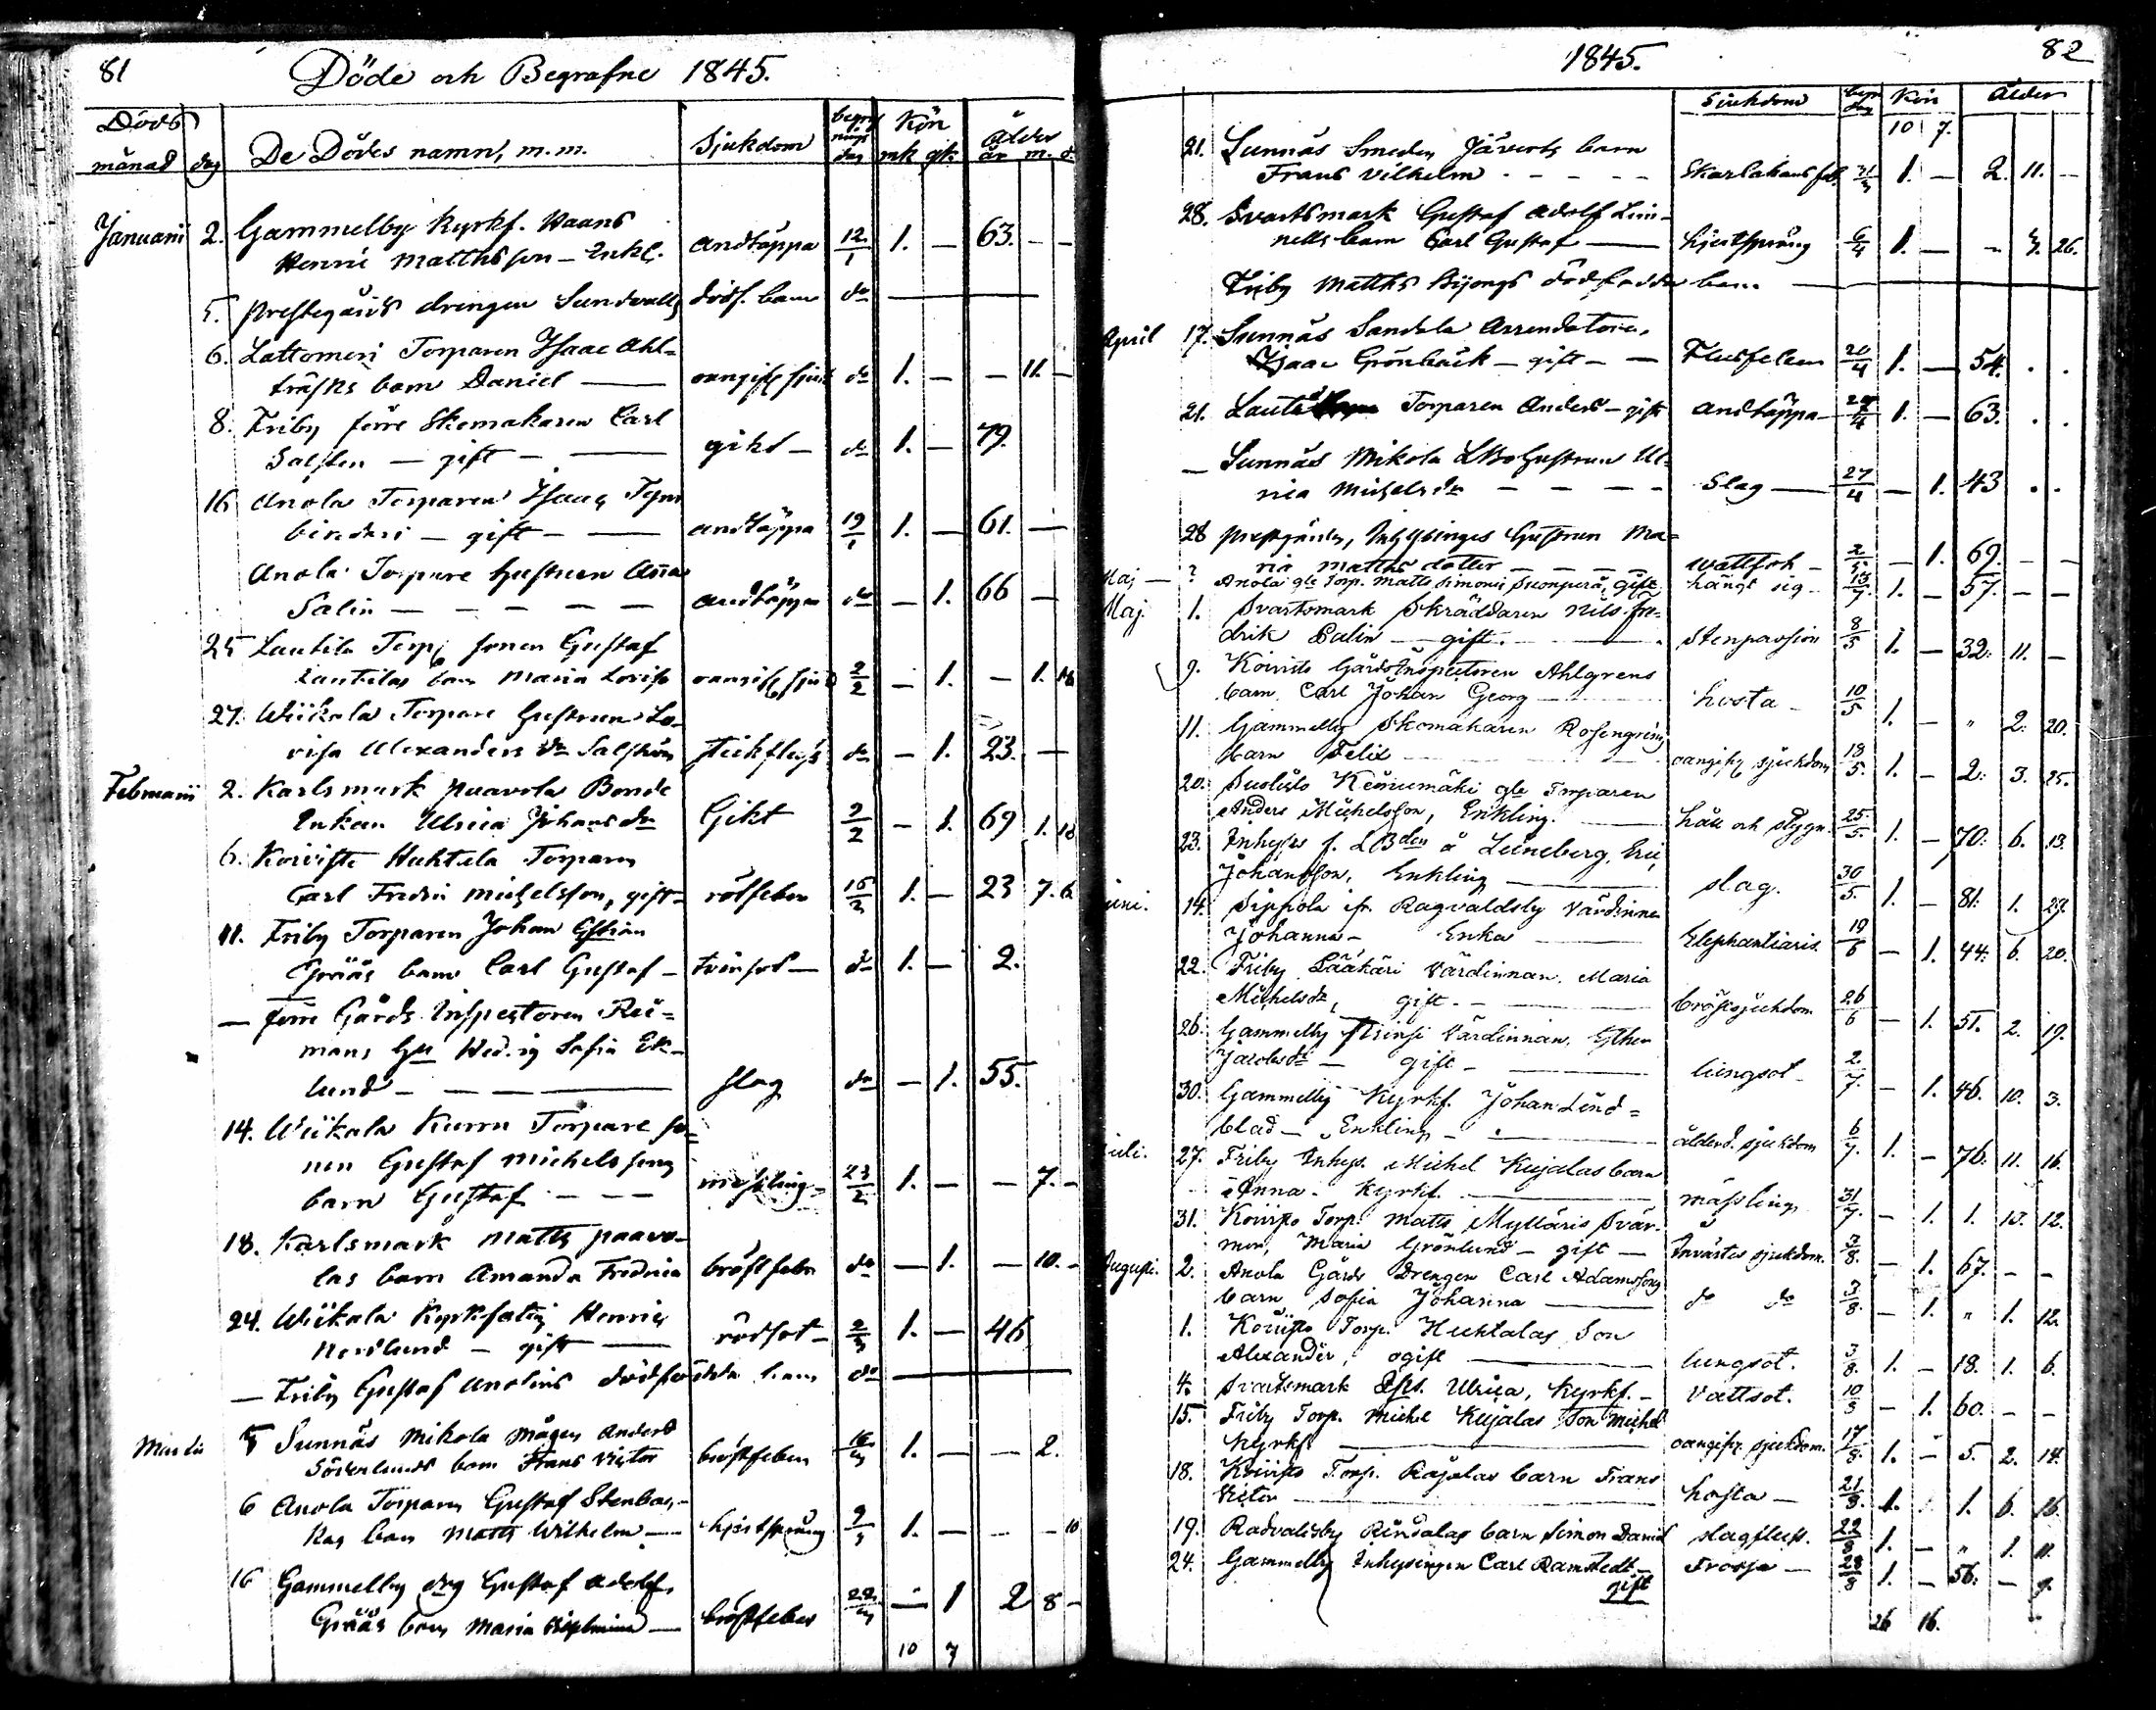 81 Döde och Begrafne 1845.
Döds månad dag De Dödes namn, m.m. Sjukdom begrafnings dag Kön mk qk ålder år m. d.
Januarii 2. Gammelby Kyrkf. Haans
Henric Matthsson - Enkl. andtäppa 12/1 1. — 63. — —
5. Prestegårds drengen Sundvalls dödf. barn do —
6. Lattomeri Torparen Isaac Ahl=
träsks barn Daniel — oangifv. sjukd do 1. — — 11. —
8. Friby förre Skomakaren Carl
Salsten — gift — gikt — do 1. — 79.
16 Anola Torparen Isaac
— gift — andtäppa 19/1 1. — 61. —
Anola Torpare hustrun Anna
Salin — — — — — andtäppa do — 1. 66 —
25 Lautila Torp. sonen Gustaf
Lautilas barn Maria Lovisa oangifv. sjukd 2/2 — 1. — 1. 18
27. Wiikala Torpare hustrun Lo-
visa Alexanders dr Salström stickfluss do — 1. 23. —
Februarii 2. Karlsmark Paavola Bonde
Enkan Ulrica Johans dr Gikt 9/2 — 1. 69 1. 18
6. Koivisto Huhtala Torparen
Carl Fredric Michelsson, gift - rötfeber 16/2 1. — 23 7. 6
11. Friby Torparen Johan
Gräås barn Carl Gustaf — tvinsot — do 1. — 2.
— förre Gårds Inspectoren Rei=
mans hu Hedvig Sofia Ek-
lund — — — slag do — 1. 55.
14. Wiikala Kurru Torpare so=
nen Gustaf Michelssons
barn Gustaf — — — messling 23/2 1. — — 7. —
18. Karlsmark Matts Paavo-
las barn Amanda Fredrica bröstfeber do — 1. — 10. —
24. Wiikala Kyrkfattig Henric
Nordlund — gift — rödsot — 2/3 1. — 46
— Friby Gustaf Anolins dödfödda barn do —
Martii 5 Sunnäs Mikola Mågen Anders
Söderlunds barn Frans Victor bröstfeber 16/3 1. — — 2.
6 Anola Torparen Gustaf Stenbac-
kas barn Matts Wilhelm — hjertsprång 9/3 1. — — — 10
16 Gammelby drg Gustaf Adolf
Gräås barn Maria — bröstfeber 22/3 — 1 2 8 —
10 7
1845. 82
Sjukdom begr dag Kön Ålder
10 7.
21. Sunnäs Smeden Jäverts barn
Frans Vilhelm - - - - - Skarlakansfeb. 31/3 1. — 2. 11. —
28. Svartsmark Gustaf Adolf Lin-
nells barn Carl Gustaf — hjertsprång 6/4 1. — — 3. 26.
Friby Matths Bijongs dödfödda barn —
April 17. Sunnäs Sandela Arrendatorn
Isaac Grönbäck — gift — — Flussfeber 20/4 1. — 54. . .
21. Lautila Torparen Anders — gift andtäppa 27/4 1. — 63. . .
— Sunnäs Mikola hustrun Ul-
rica Michels dr - - - - Slag — 27/4 — 1. 43 . .
28 Prestgården, Inhysinges hustrun Ma=
ria Matths dotter — — — — wattsot — 2/5 — 1. 69. — —
Maj — ? Anola gle Torp. Matts Simonis gift, hängt sig — 13/7. 1. — 57. — —
Maj. 1. Svartsmark Skräddaren Nils Fre-
drik Palin — gift. — Stenpassion 8/5 1. — 32. 11. —
9. Koivisto Gårds Inspectoren Ahlgrens
barn Carl Johan Georg — hosta — 10/5 1. — " 2. 20.
11. Gammelby Skomakaren Rosengréns
barn Felix — oangifv. sjukdom 18/5. 1. — 2. 3. 25.
20. Suolisto Kemumäki gle Torparen
Anders Michelsson, Enkling. — håll och stygn. 25/5. 1. — 70. 6. 13.
23. Inhyses f. LBden å Leineberg, Eric
Johansson, Enkling — slag. 30/5. 1. — 81. 1. 29.
Juni. 14. Sippola ifr. Ragvaldsby Värdinna
Johanna — Enka — Elephantiasis. 19/6 — 1. 44. 6. 20.
22. Friby Lääkäri Värdinnan. Maria
Michelsdr, gift. — — bröstsjukdom 26/6 — 1. 51. 2. 19.
26. Gammelby Prinsi Värdinnan. Esther
Jacobsdr — gift — — lungsot — 2/7. — 1. 46. 10. 3.
30. Gammelby Kyrkf. Johan Lind=
blad — Enkling — ålderd. sjukdom 6/7. 1. — 76. 11. 16.
Juli. 27. Friby Inhys. Michel Kujalas barn
Anna. Kyrkf. — mässling 31/7. — 1. 1. 10. 12.
31. Koivisto Torp. Matts Myllaris Svär-
mor, Maria Grönlund — gift — Invärtes sjukdom. 3/8. — 1. 67. — —
Augusti. 2. Anola Gårds Drengen Carl Adamssons
barn Sofia Johanna — do do 3/8. — 1. " 1. 12.
1. Koivisto Torp. Huhtalas Son
Alexander, ogift — lungsot. 3/8. 1. — 18. 1. 6.
4. Svartsmark Ulrica, Kyrkf. — Vattsot. 10/8 — 1. 60. — —
15. Friby Torp. Michel Kujalas Son Michel
Kyrkf. — oangifv. sjukdom. 17/8. 1. — 5. 2. 14.
18. Koivisto Torp. Rajalas barn Frans
Victor — hosta — 21/8. 1. 1. 6. 16.
19. Radvalisby Rindalas barn Simon David slagfluss. 22/8 1. — " 1. 11.
24. Gammelby Inhysingen Carl Ramstedt — gift Frossa — 28/8 1. — 56. — 9.
26 16.